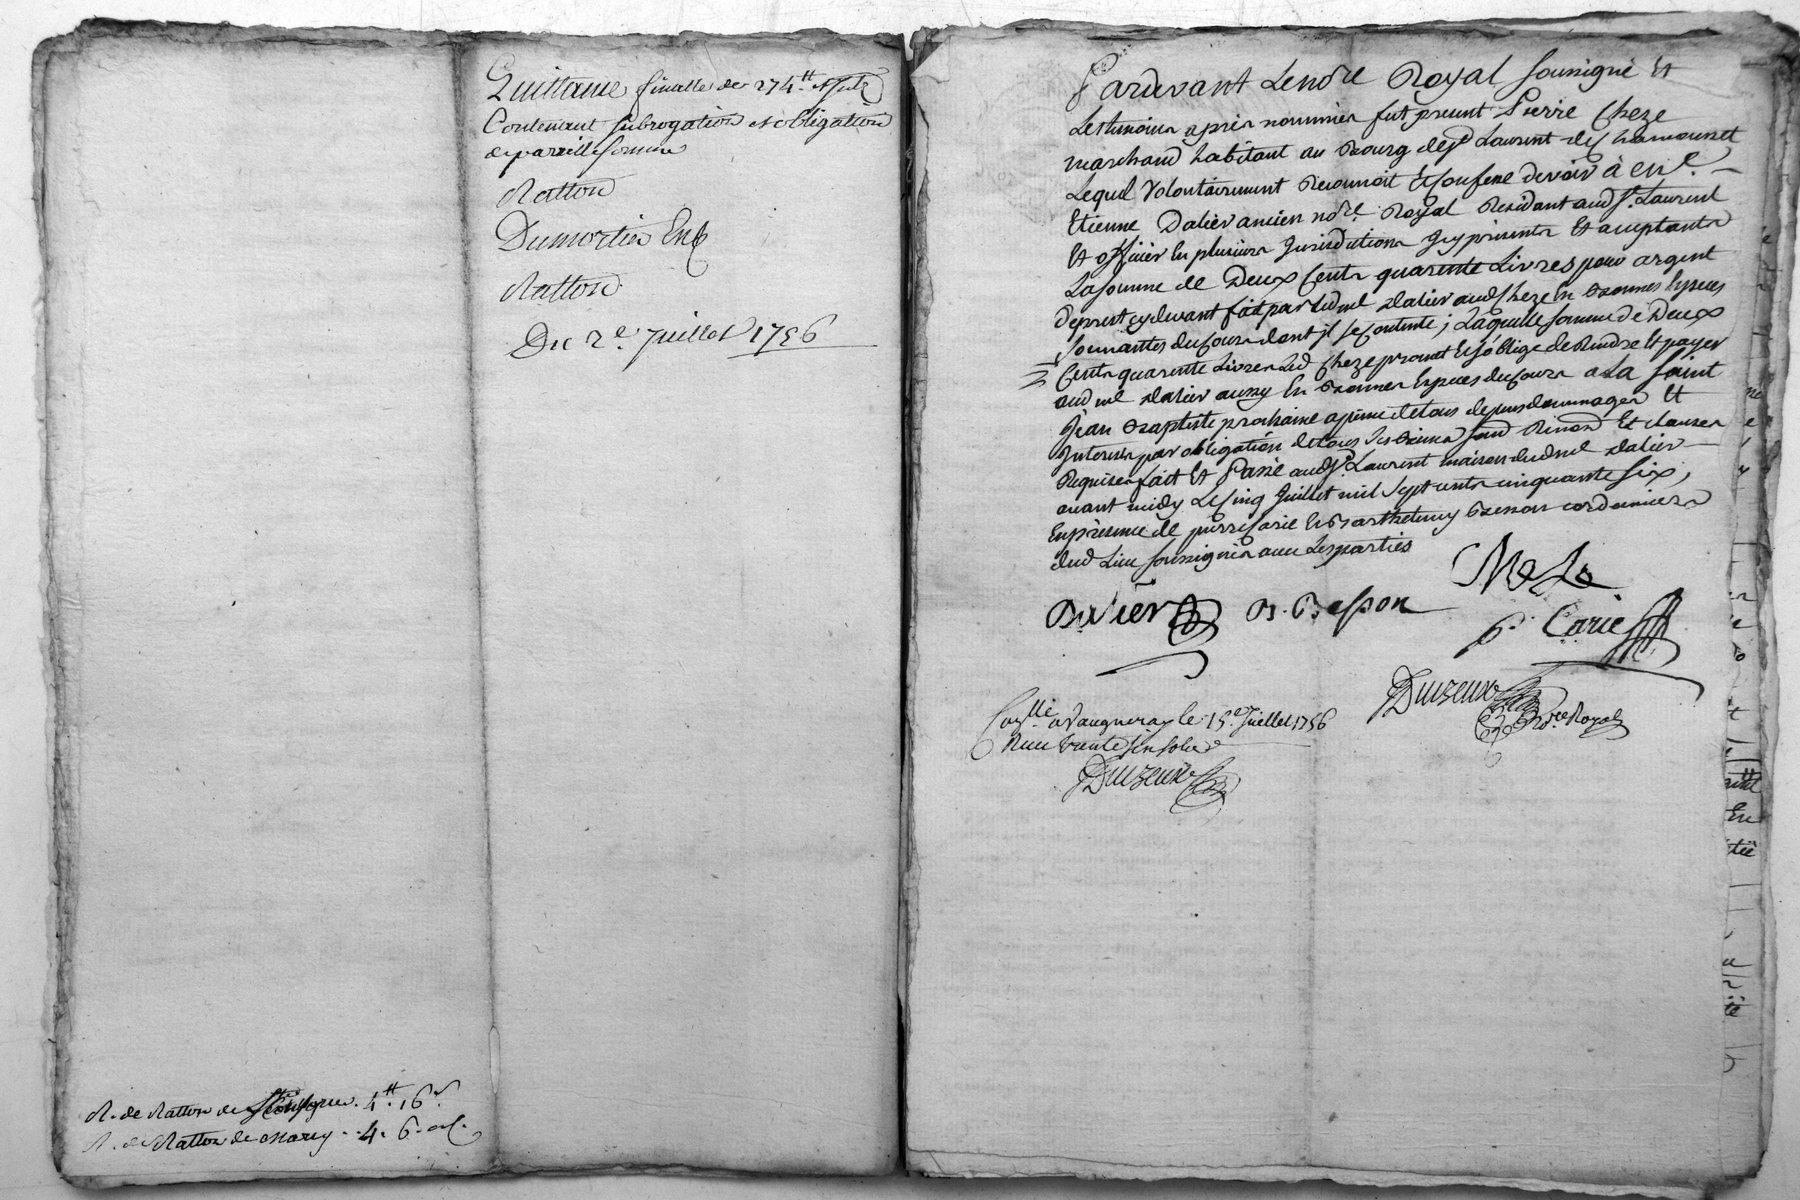 Quittance finalle de 274.tt
Contenant subrogation et obligation
de pareille somme
Ratton
Dumortier
Ratton
Du 2e. Juillet 1756
R. de Ratton de 4.tt 16s.
R. de Ratton de Marcy . . 4. 6.
Pardevant Le nore Royal soussigné Et
Les temoins apres nommés fut present Pierre Cheze
marchand habitant au Bourg de St Laurent de Chamousset
Lequel volontairement Reconnoit Et confesse devoir à
Etienne Dalier ancien nore. Royal Residant aud St. Laurent
Et officier En plusieurs Jurisdictions Icy present Et acceptant
La somme de Deux Cents quarente Livres pour argent
de prest cy devant fait par led me Dalier aud Cheze En Bonnes Especes
sonnantes du cours dont il se contente ; Laquelle somme de Deux
Cents quarente Livres Led Cheze promet Et s'oblige de Rendre Et payer
aud me Dalier aussy En Bonnes Especes du cours a La saint
Jean Baptiste prochaine a peine de tous depens dommages Et
Interests par obligation de tous ses Biens soud Renond Et clauses
Requises fait Et Passé aud St. Laurent maison dud me Dalier
avant midy Le cinq Juillet mil sept cents cinquante six,
En presence de pierre Carie Et Barthelemy Besson cordonniers
dud Lieu soussignés avec Les parties
Dalier B. Besson
p. Carie
Duvzeux
Nore Royal
Conlle a Vaugneray le 15e Juillet 1756
Reçu trente six sols
Duvzeux